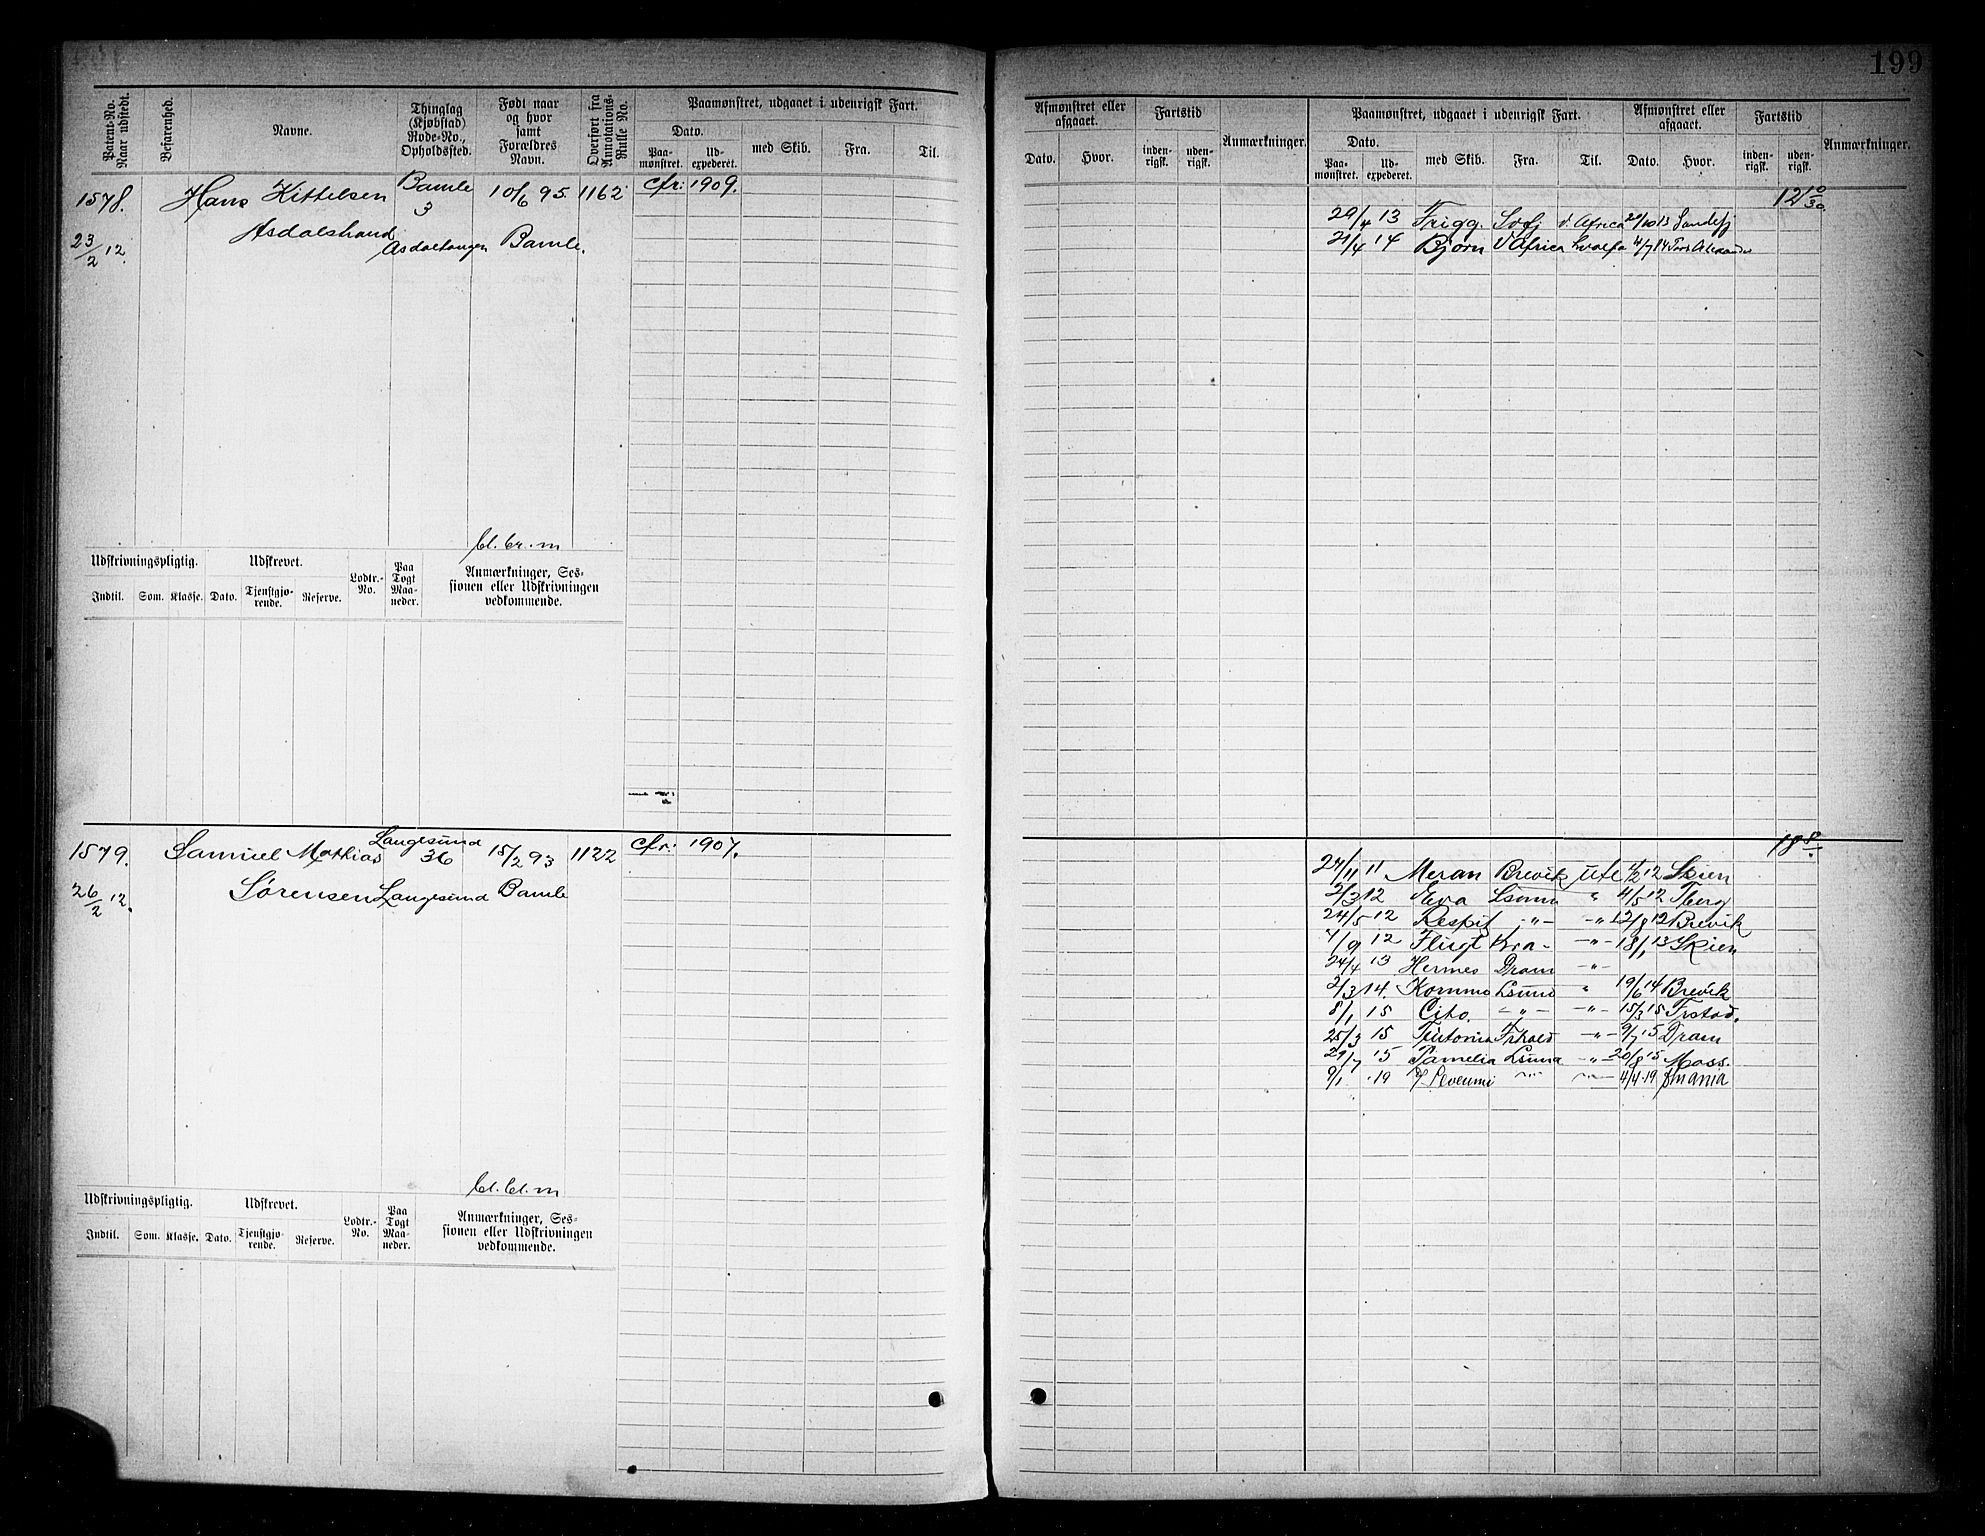 199
Patent-No. Naar udstedt.
Befarenhed.
Navne.
Thinglag (Kjøbstad) Rode-No., Opholdssted.
Født naar og hvor samt Forældres Navn.
Overført fra Annotations-Rulle No.
Paamønstret, udgaaet i udenrigsk Fart.
Dato.
Paa-mønstret.
Ud-expederet.
med Skib.
Fra.
Til.
Afmønstret eller afgaaet.
Dato.
Hvor.
Fartstid
inden-rigsk.
uden-rigsk.
Anmærkninger.
Paamønstret, udgaaet i udenrigsk Fart.
Dato.
Paa-mønstret.
Ud-expederet.
med Skib.
Fra.
Til.
Afmønstret eller afgaaet.
Dato.
Hvor.
Fartstid
inden-rigsk.
uden-rigsk.
Anmærkninger.
1578. Hans Kittelsen Bamle 3 10/6 95. 1162 cfr: 1909.
23/2 12. Asdalstrand Asdaltangen Bamle.
12 10/30
29/4 13 Frigg. Sdfj d. Africa 29/10 13 Sandefj
21/4 14 Bjørn d Africa 4/7 14
Udskrivningspligtig.
Indtil. Som. Klasse.
Udskrevet.
Dato. Tjenstgjørende. Reserve.
Lodtr.-No.
Paa Togt Maa-neder.
Anmærkninger, Ses-sionen eller Udskrivningen vedkommende.
1579. Samuel Mathias Langesund 36 15/2 93 1122 cfr: 1907.
26/2 12. Sørensen Langesund Bamle
18 8/
27/11 11 Meran Brevik ute 1/2 12 Skien
2/3 12 Eva Lsund " 4/5 12 Tberg
24/5 12 Respit -"- -"- 12/8 12 Brevik
7/9 12 Flugt Kra- -"- 18/1 13 Skien
24/4 13 Hermes Dram -"-
2/3 14. Kommo Lsund " 19/6 14 Brevik
8/1 15 Cito. -"- -"- 15/3 15 Frstad.
25/3 15 Teutonia Frhald -"- 9/7 15 Dram
29/7 15 Pamelia Lsund -"- 20/8 15 Moss.
9/1 .19 -"- -"- 4/4 .19
Udskrivningspligtig.
Indtil. Som. Klasse.
Udskrevet.
Dato. Tjenstgjørende. Reserve.
Lodtr.-No.
Paa Togt Maa-neder.
Anmærkninger, Ses-sionen eller Udskrivningen vedkommende.